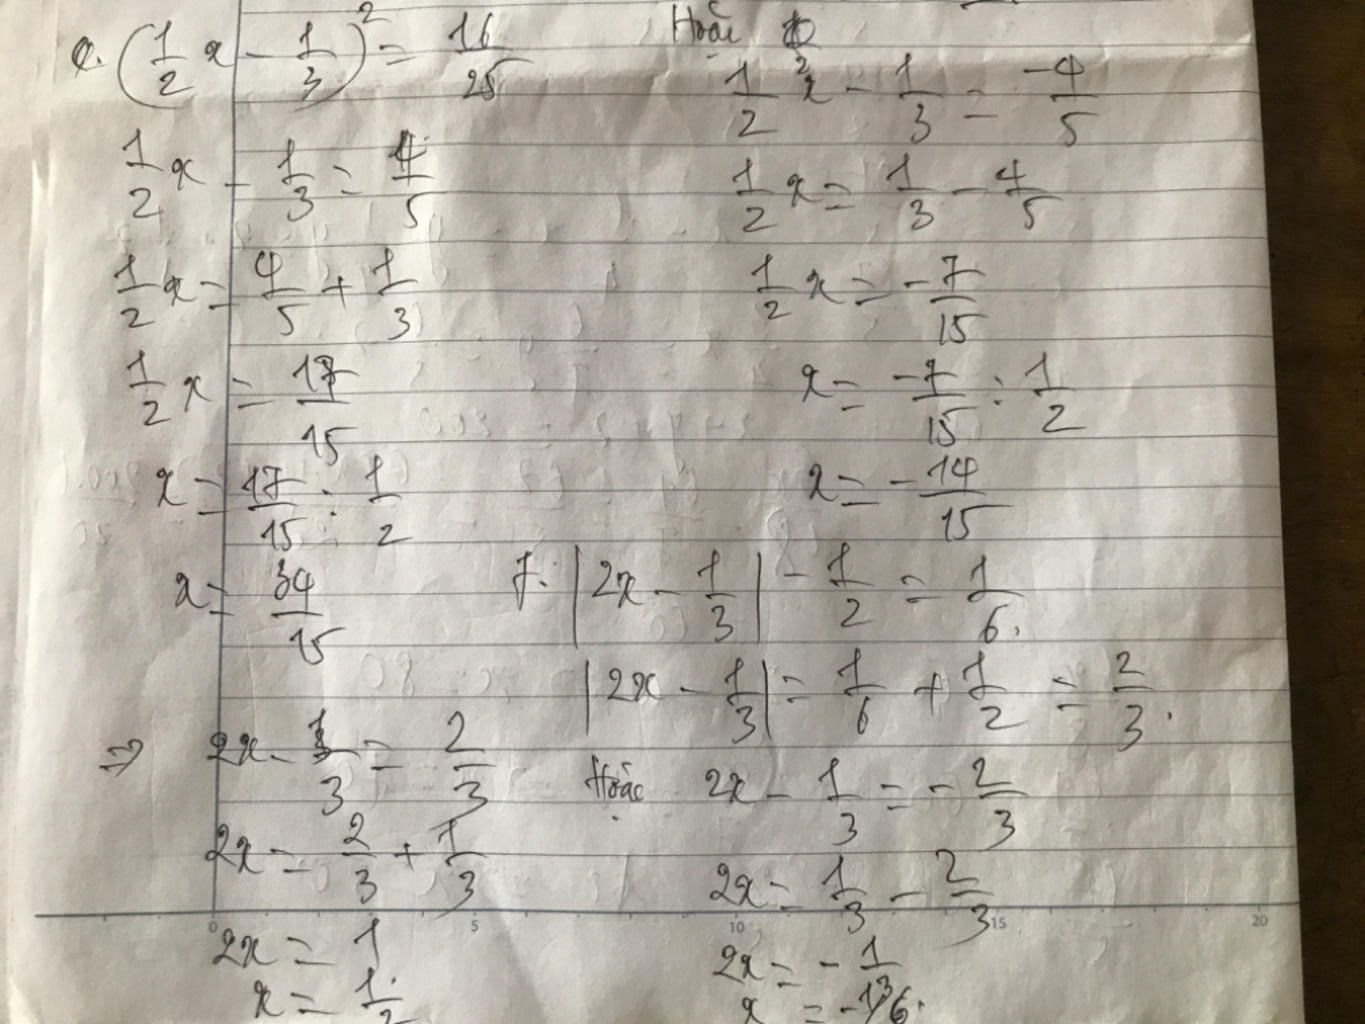 e. (1/2 x - 1/3)^2 = 16/25
1/2 x - 1/3 = 4/5
1/2 x = 4/5 + 1/3
1/2 x = 17/15
x = 17/15 : 1/2
x = 34/15
Hoặc
1/2 x - 1/3 = -4/5
1/2 x = 1/3 - 4/5
1/2 x = -7/15
x = -7/15 : 1/2
x = -14/15
f. |2x - 1/3| - 1/2 = 1/6.
|2x - 1/3| = 1/6 + 1/2 = 2/3.
⇒ 2x - 1/3 = 2/3
2x = 2/3 + 1/3
2x = 1
x = 1/2
Hoặc 2x - 1/3 = -2/3
2x = 1/3 - 2/3
2x = -1/3
x = -1/6.
0 5 10 15 20